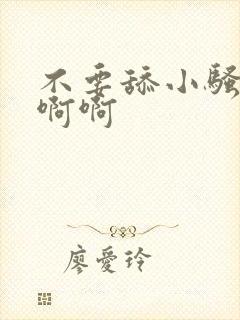 不要舔小骚
啊啊
廖爱玲